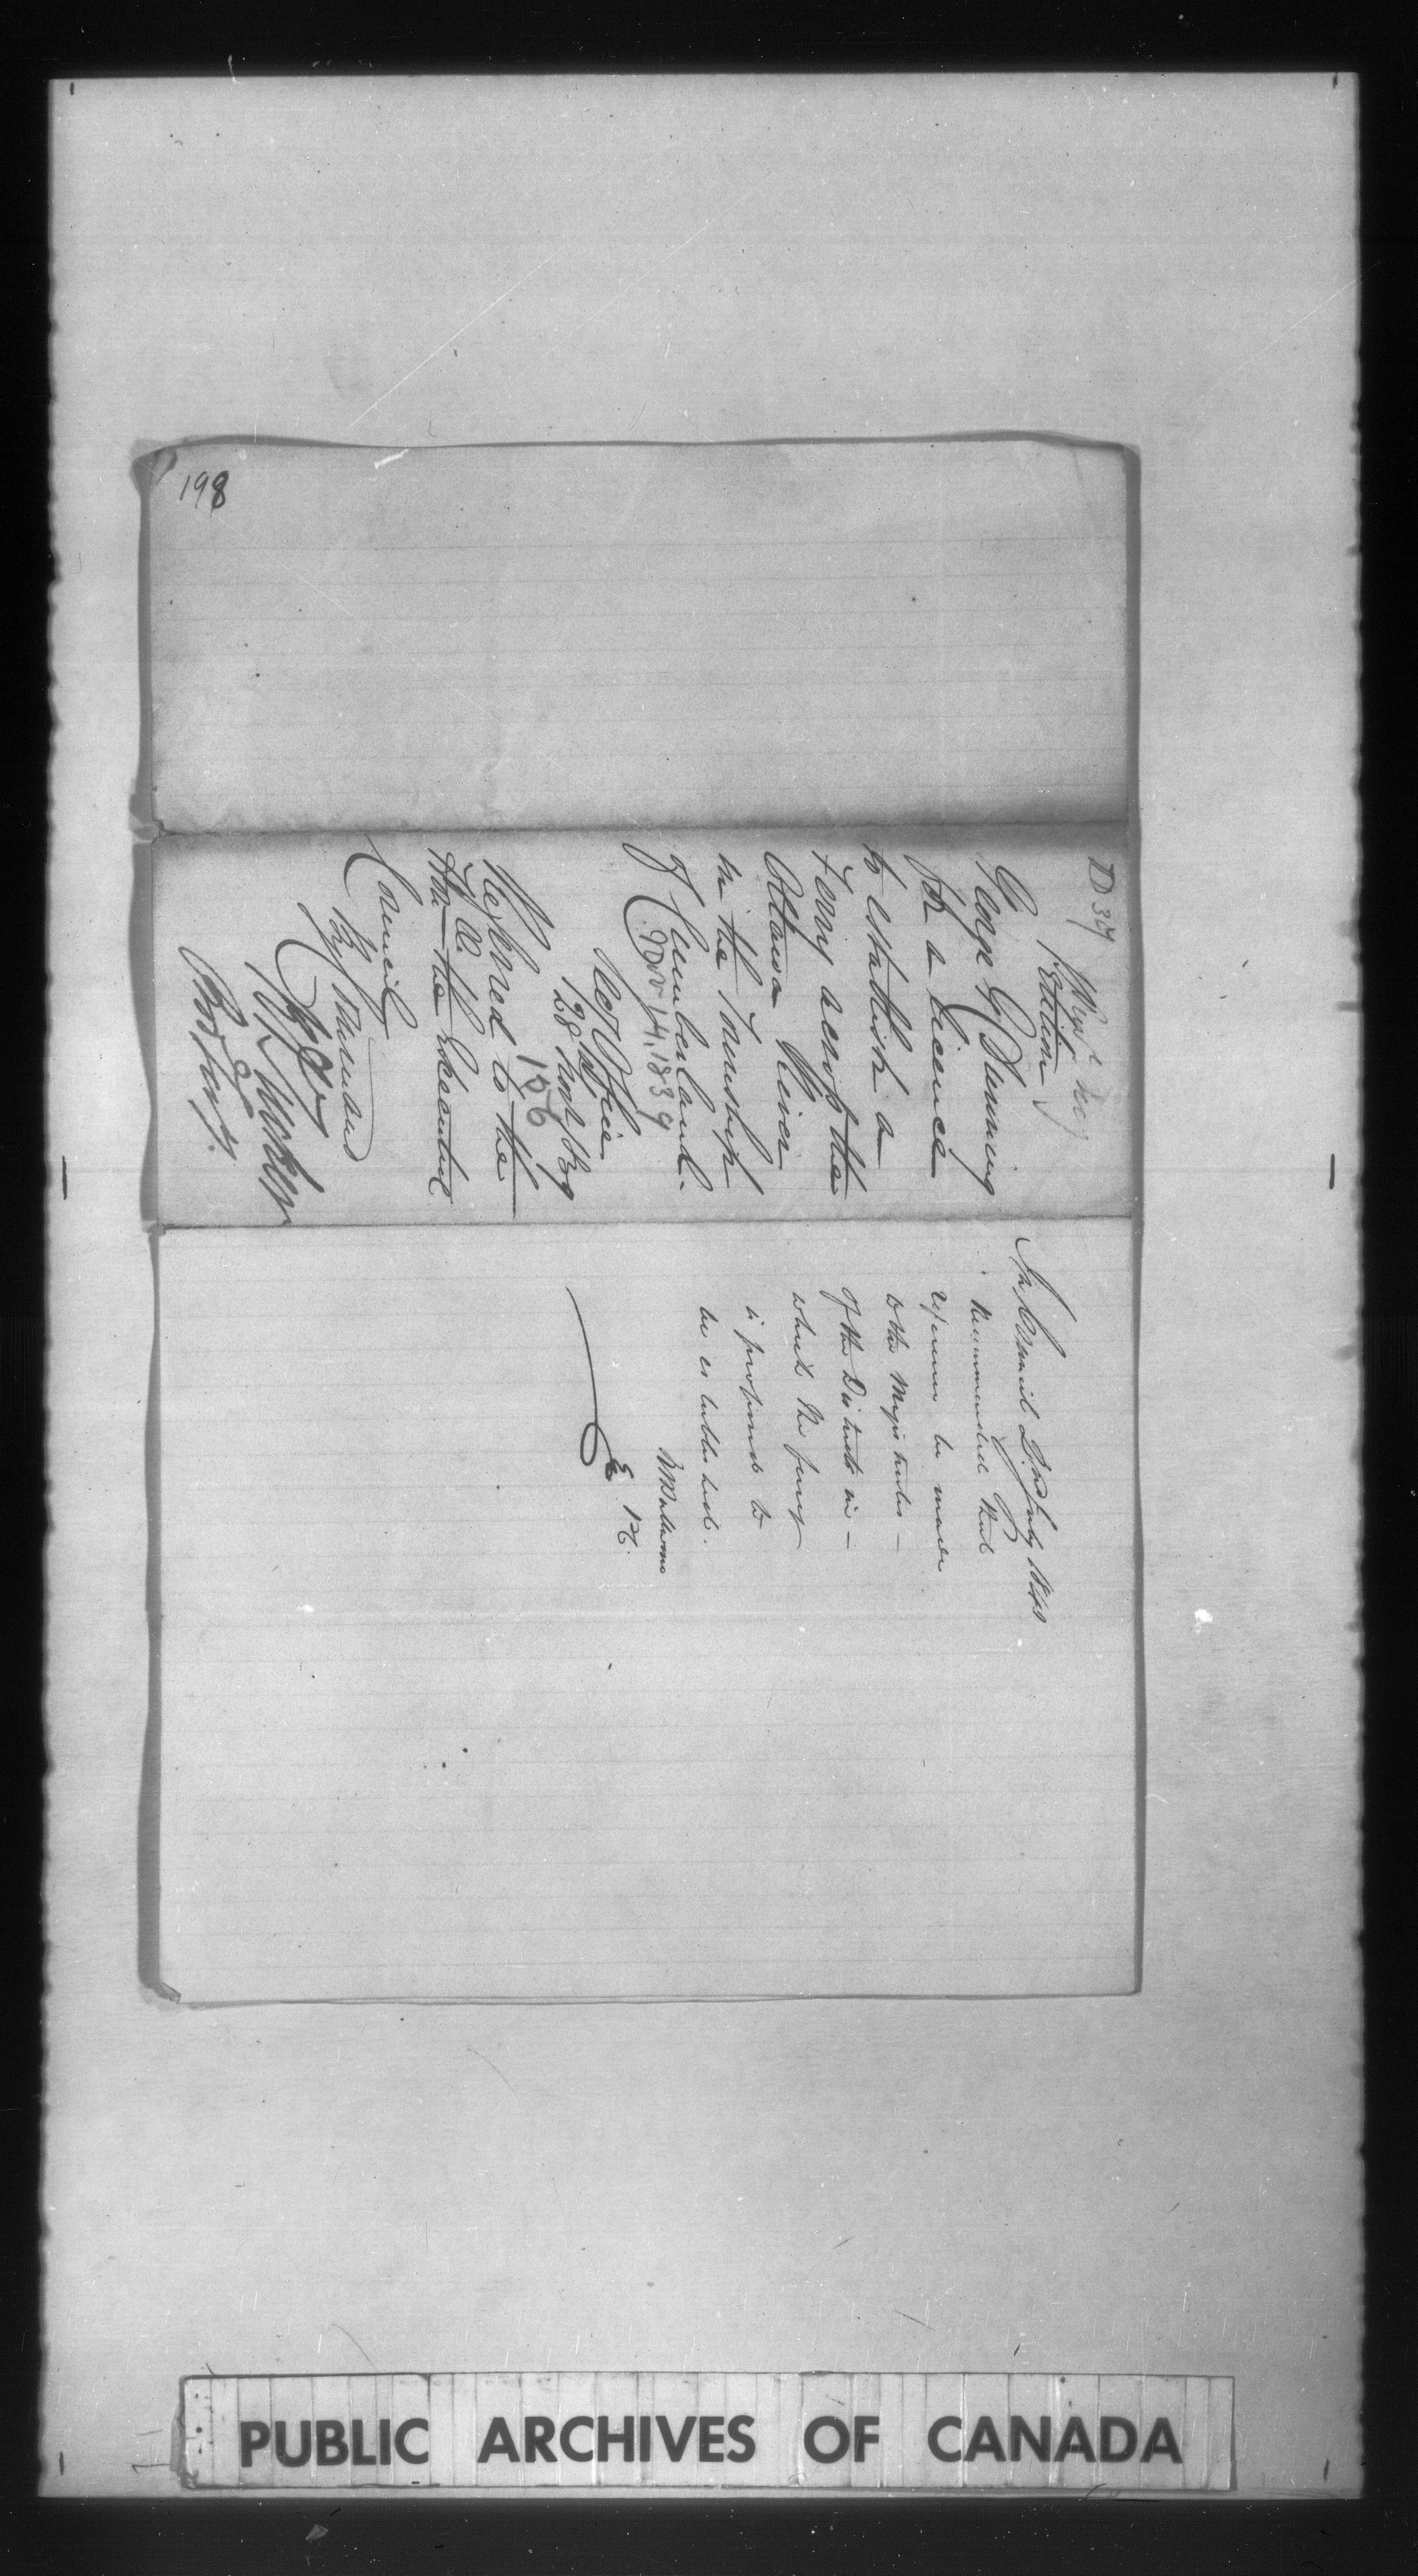 198
D 37
Petition
George G Dunning
for a licence
to establish a
Ferry across the
Ottawa River
in the Township
of Cumberland.
Nov 14, 1839
Rec Office
28 Nov /39
156
Referred to the
Hon. the Executive
Council
By Command
Pro Secy.
In Council 2nd July 1840
Recommended that
reference be made
to the Magistrates
of the District in
which the ferry
is proposed to
be established.
PUBLIC ARCHIVES OF CANADA